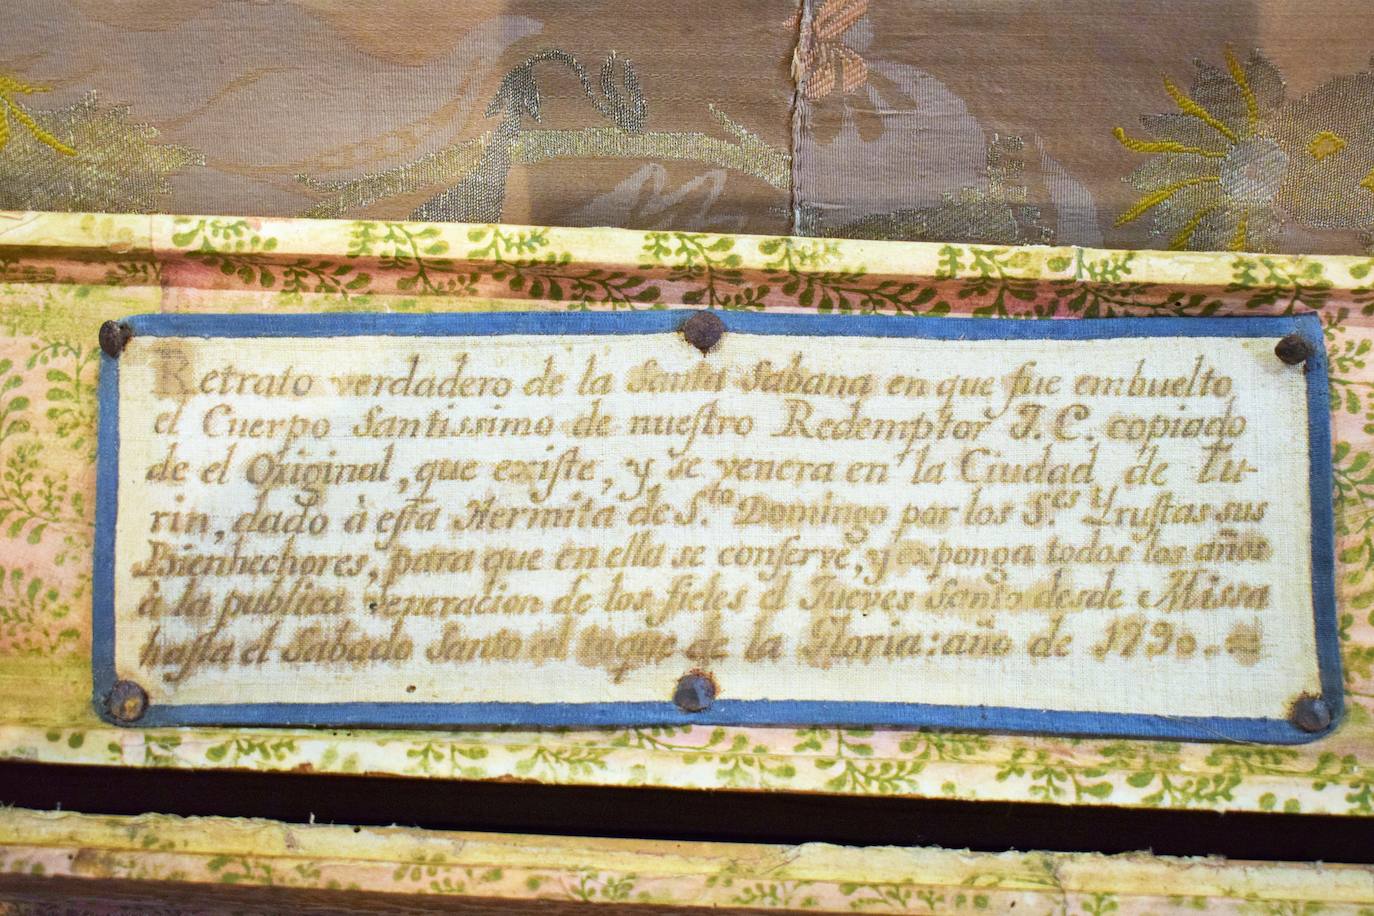 Retrato verdadero de la Santa Sabana en que fue embuelto
el Cuerpo Santissimo de nueſtro Redemptor J. C. copiado
de el Original, que exiſte, y se venera en la Ciudad de Tu-
rin, dado à eſta Hermita de S.to Domingo por los S.es Yruſtas sus
Bienhechores, para que en ella se conſerve, y exponga todos los años
à la publica veneracion de los fieles el Jueves Santo desde Missa
haſta el Sabado Santo al toque de la Gloria: año de 1790.=